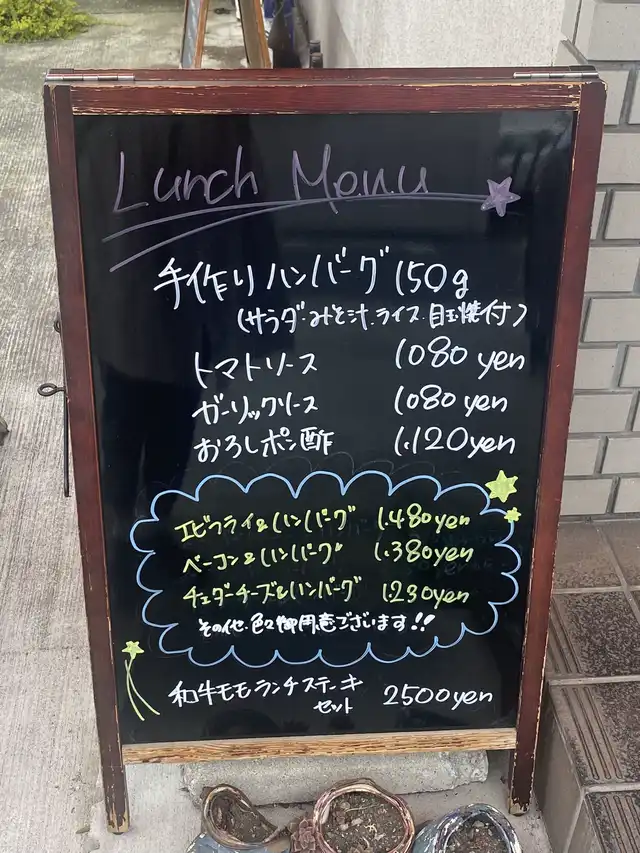 Lunch Menu
手作りハンバーグ 150g
(サラダ・みそ汁・ライス・目玉焼付)
トマトソース 1080 yen
ガーリックソース 1080 yen
おろしポン酢 1.120yen
エビフライ&ハンバーグ 1.480yen
ベーコン&ハンバーグ 1.380yen
チェダーチーズ&ハンバーグ 1.230yen
その他・色々御用意ございます!!
和牛モモランチステーキ 2500yen
セット